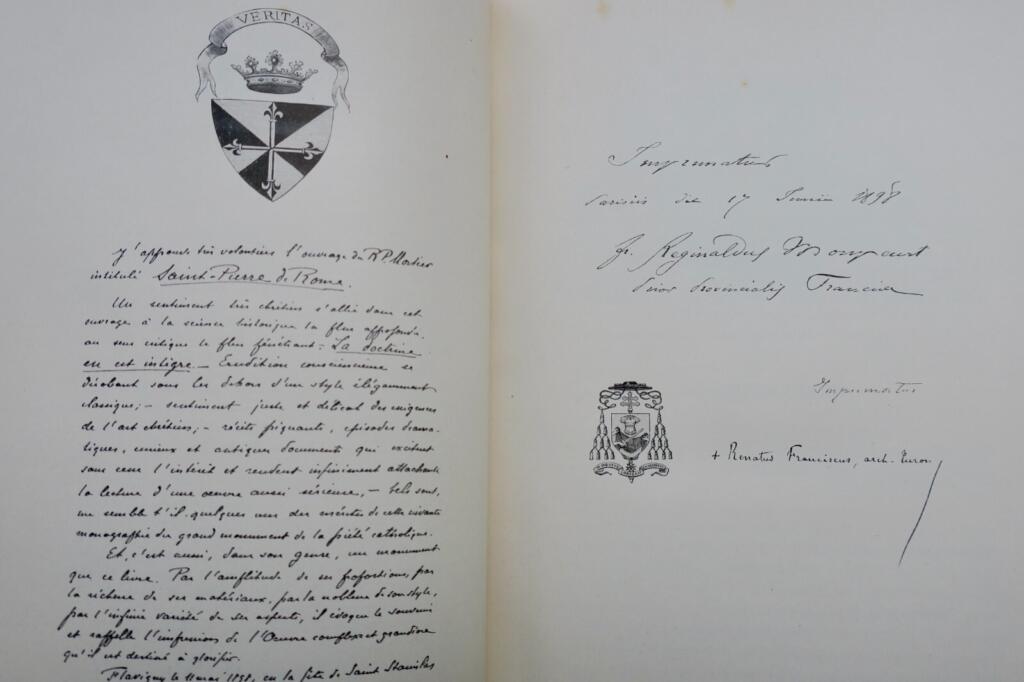 VERITAS
J'approuve très volontiers l'ouvrage du R.P. Mortier
intitulé Saint-Pierre de Rome.
Un sentiment très chrétien s'allie dans cet
ouvrage à la science historique la plus approfondie
au sens critique le plus pénétrant - La doctrine
en est intègre. - Erudition consciencieuse se
dérobant sous les dehors d'un style élégamment
classique; - sentiment juste et délicat des exigences
de l'art chrétien; - récits piquants, épisodes drama-
tiques, curieux et antiques documents qui excitent
sans cesse l'intérêt et rendent infiniment attachante
la lecture d'une œuvre aussi sérieuse, - tels sont,
me semble t'il quelques uns des mérites de cette vivante
monographie du grand monument de la piété catholique.
Et, c'est aussi, dans son genre, un monument
que ce livre. Par l'amplitude de ses proportions, par
la richesse de ses matériaux, par la noblesse de son style,
par l'infinie variété de ses aspects, il évoque le souvenir
et rappelle l'impression de l'Œuvre complexe et grandiose
qu'il est destiné à glorifier.
Flavigny le 11 mai 1898, en la fête de Saint Stanislas
Imprimatur
Parisiis die 17 1898
fr. Reginaldus Monpeurt
Prior Provincialis Franciæ
Imprimatur
+ Renatus Franciscus, arch. Turon.